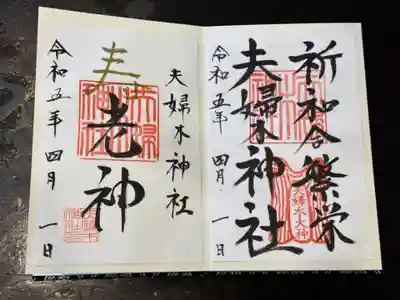 祈和合繁栄
夫婦木神社
令和五年 四月 一日
夫婦木大神
夫婦木神社
老神
令和五年 四月 一日